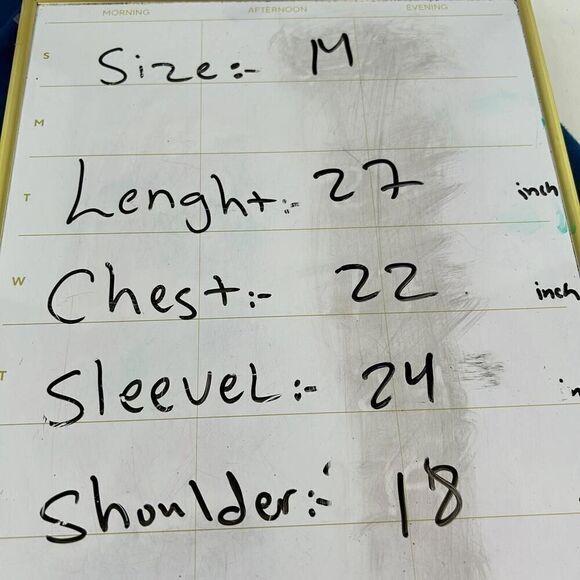 MORNING AFTERNOON EVENING
S Size:- M
M
T Lenght:- 27 inch
W Chest:- 22 inch
T Sleevel:- 24 in
Shoulder:- 18